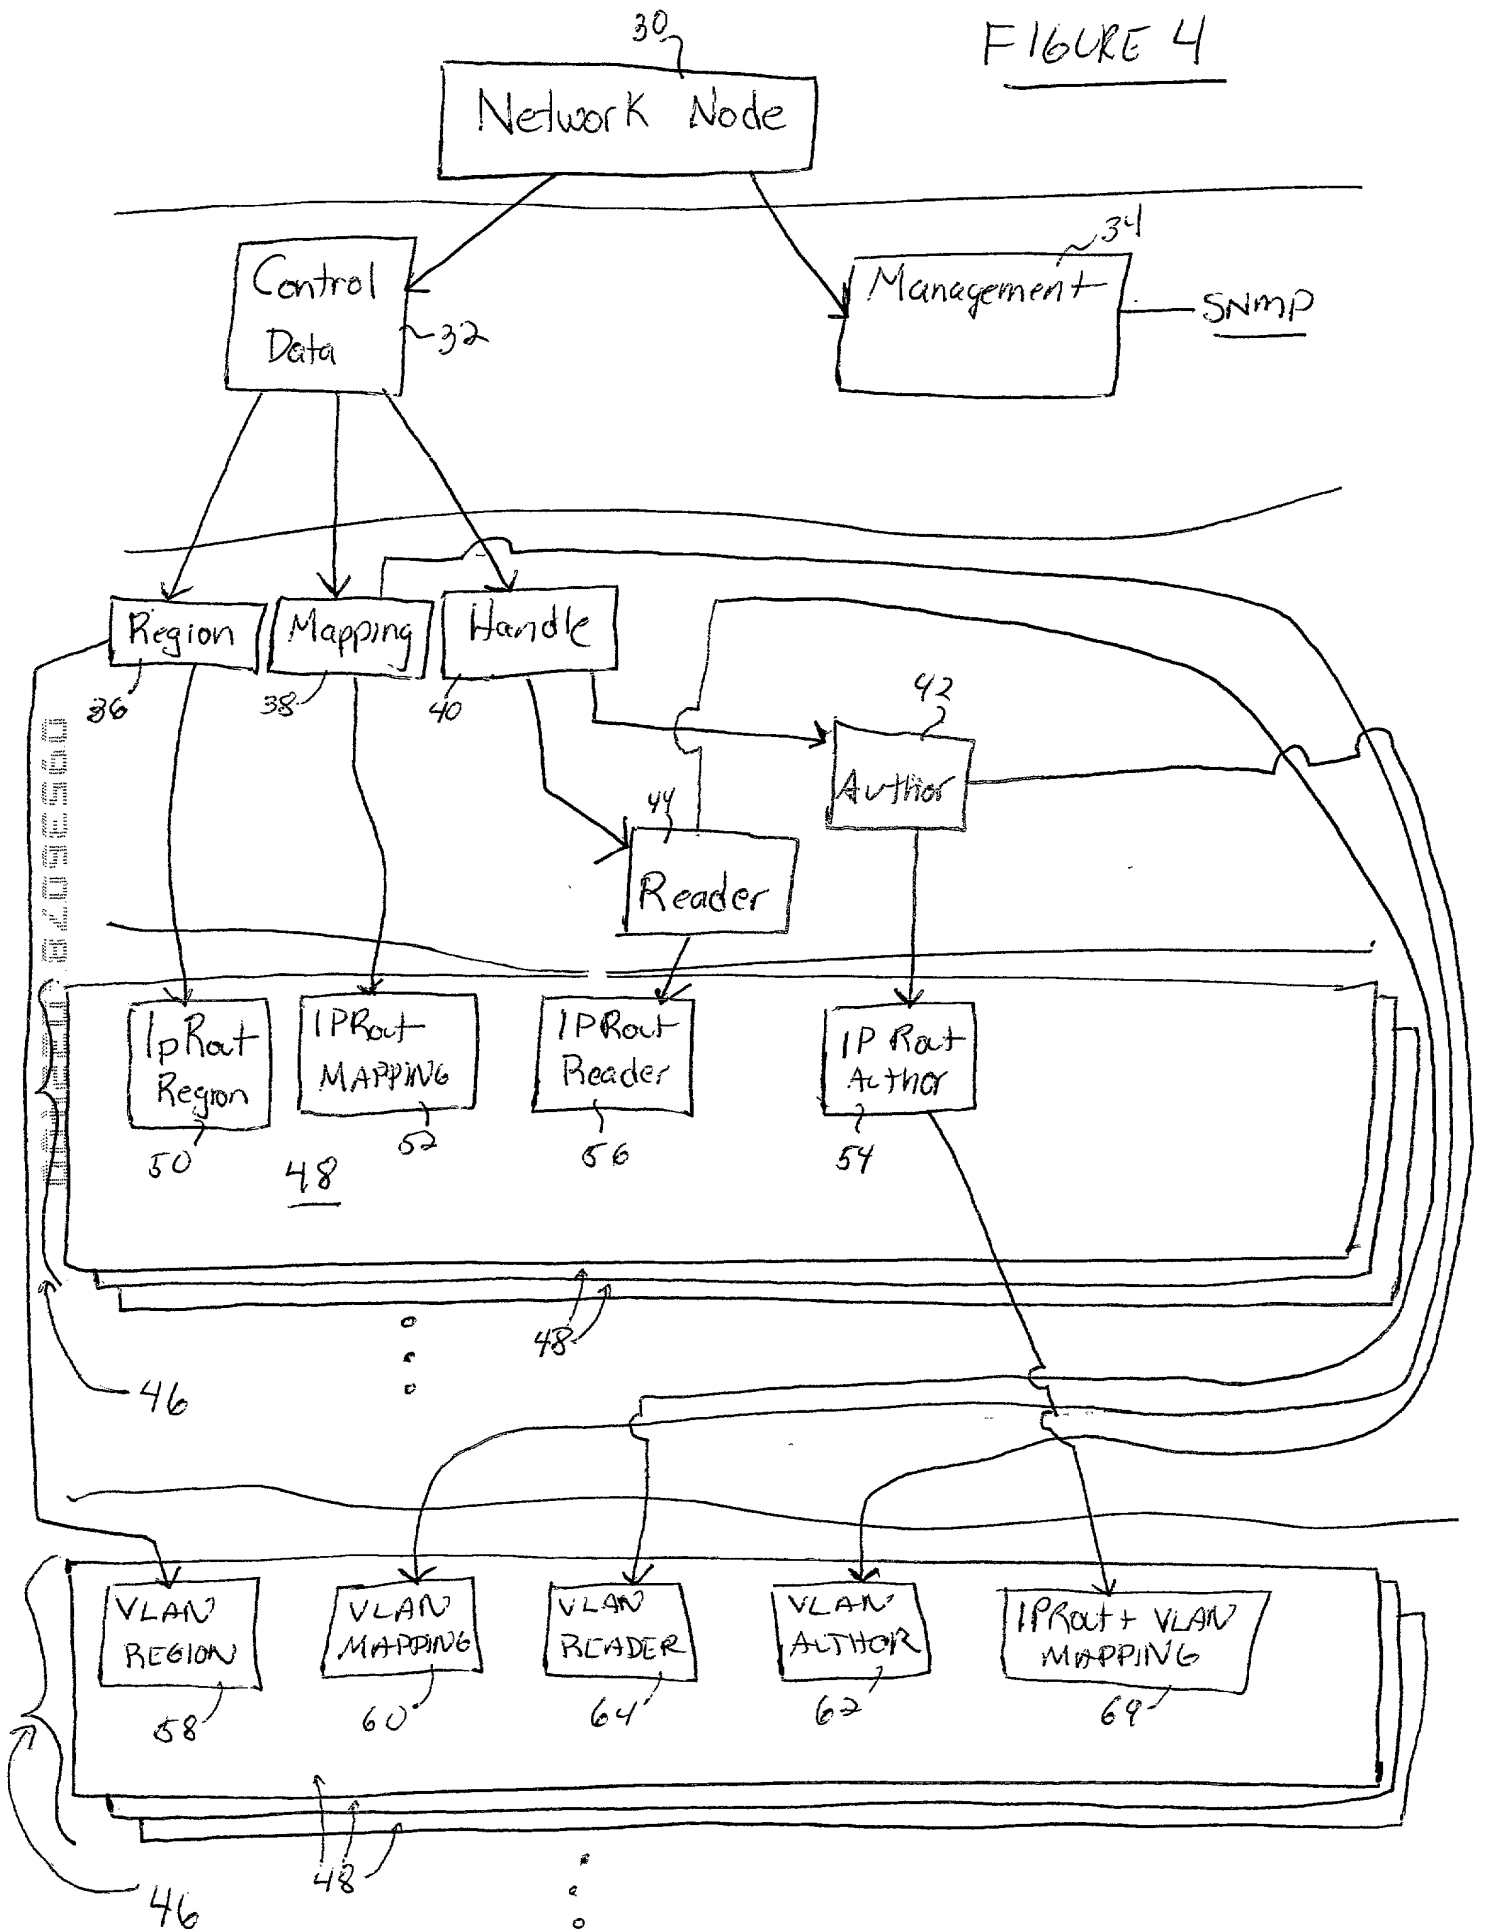 30
FIGURE 4
Network Node
34
Control
Data
32
Management
SNMP
Region
Mapping
Handle
36
38
40
42
Author
44
Reader
IpRout
Region
IPRout
MAPPING
IPRout
Reader
IP Rout
Author
50
52
56
54
48
48
46
VLAN
REGION
VLAN
MAPPING
VLAN
READER
VLAN
AUTHOR
IPRout + VLAN
MAPPING
58
60
64
62
69
48
46